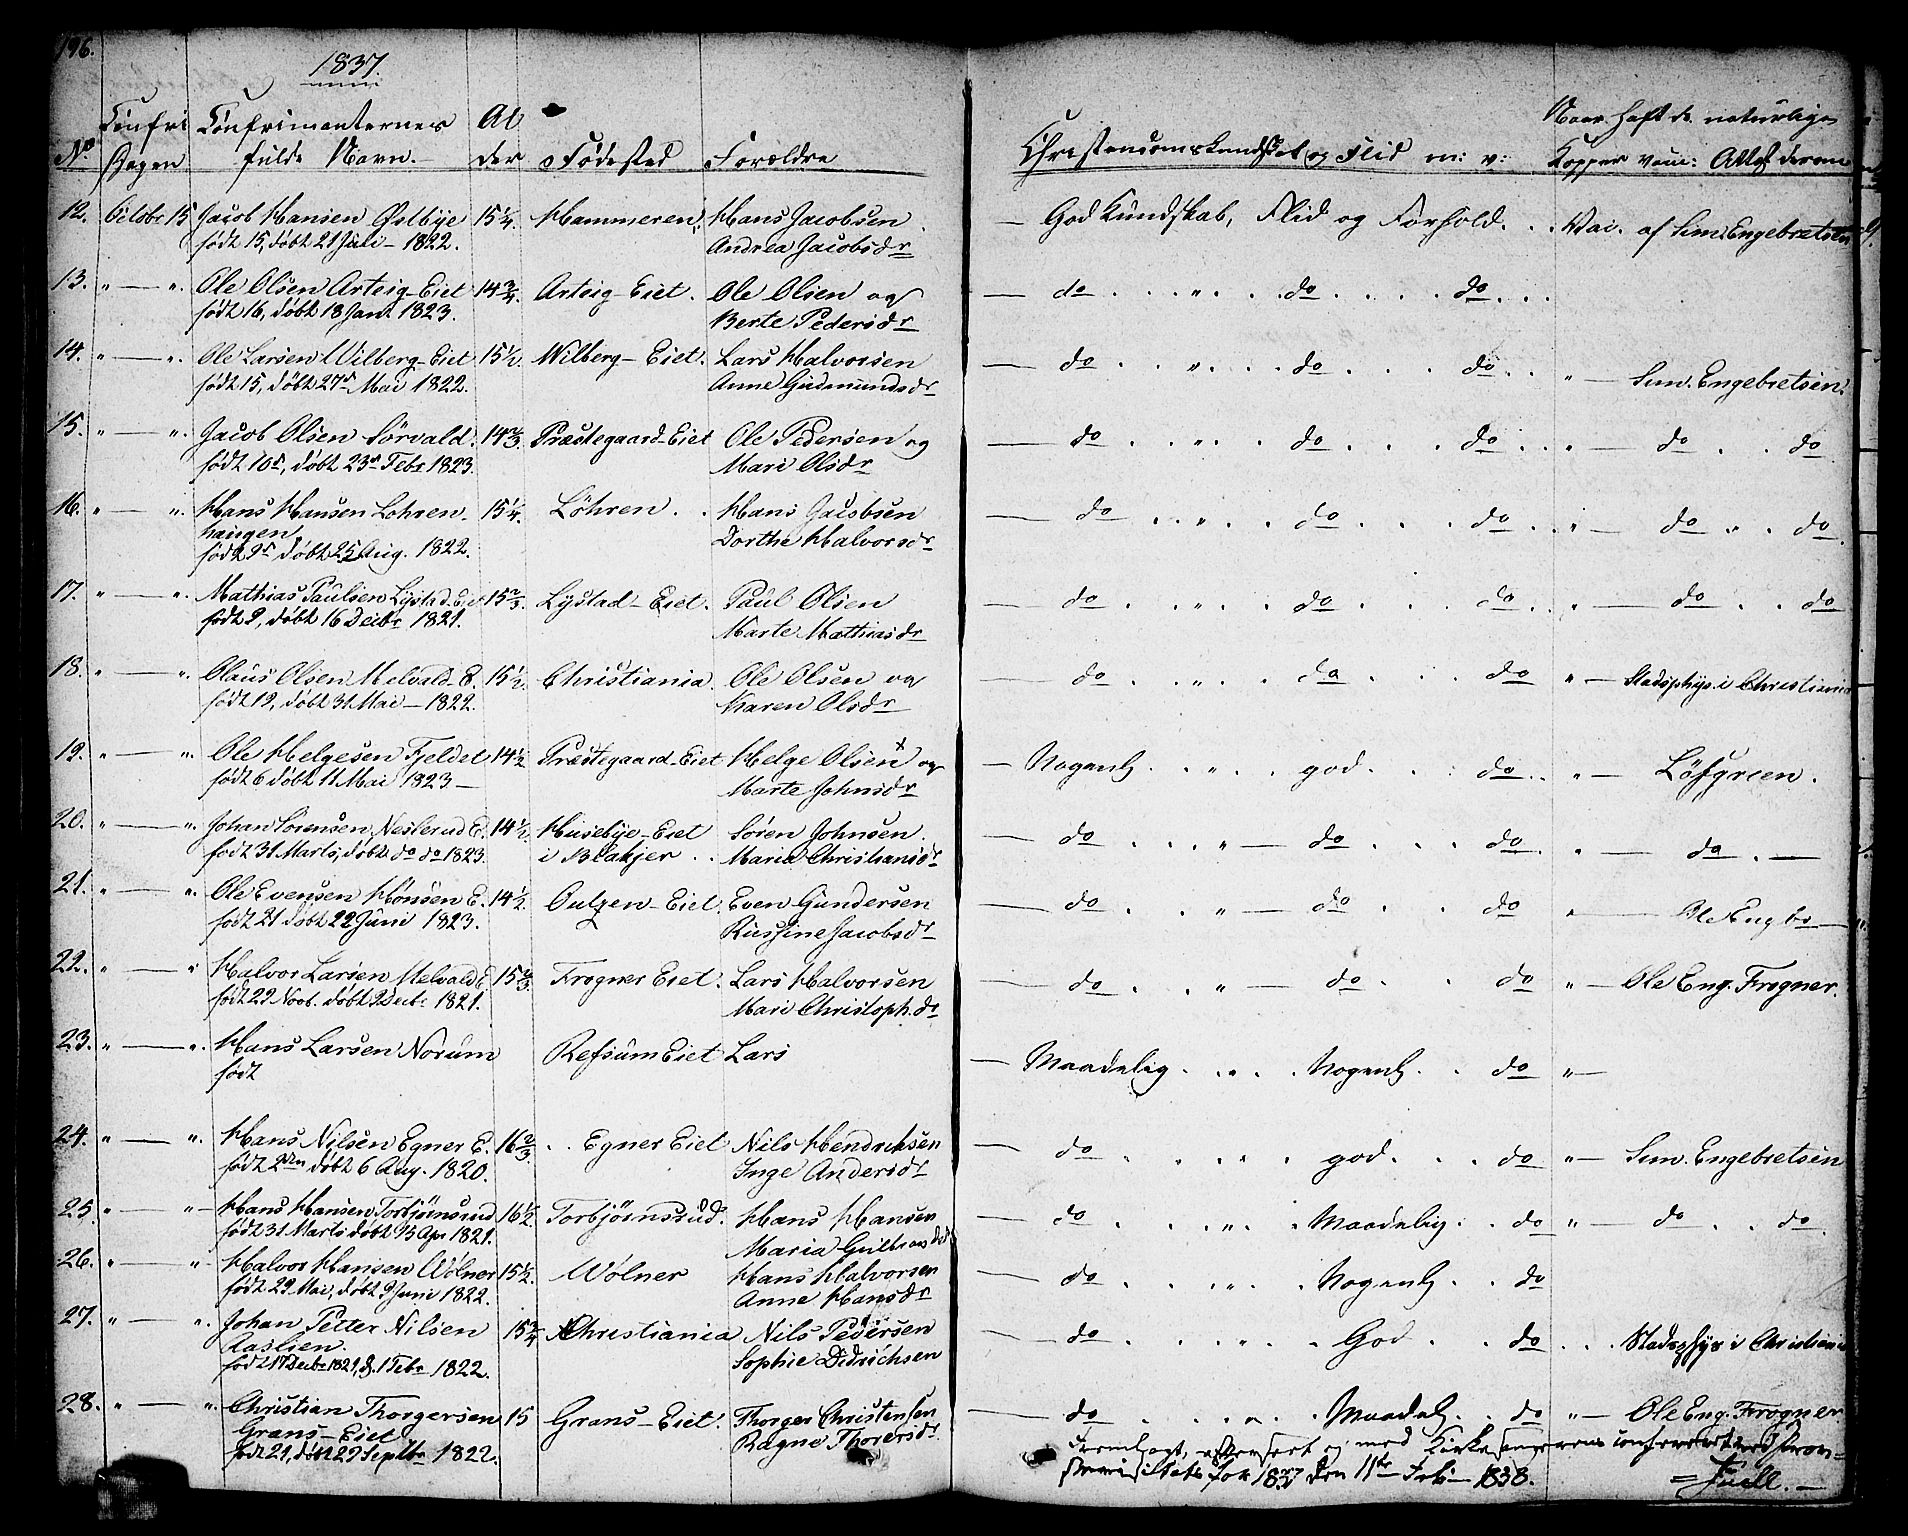 196.
1837.
No
Confir Dagen
Confirmanternes fulde Navn.
Alder
Fødested
Forældre
Christendomskundskab og Flid m: v:
Naar haft de naturlige Kopper
12. Octobr 15 Jacob Hansen Østbye 15 1/4. Hammeren, Hans Jacobsen — God Kundskab, Flid og Forhold. . . Vac. af Sim. Engebretsen
født 15, døbt 21 Juli – 1822. Andrea Jacobsdr
13. " — ". Ole Olsen Arteig-Eiet 14 3/4. Arteig-Eiet. Ole Olsen og — do . . " . . do . . . . do . . .
født 16, døbt 18 Janr 1823. Berte Pedersdr
14. " — ". Ole Larsen Wilberg-Eiet 15 1/2. Wilberg-Eiet. Lars Halvorsen — do . . " . . . do . . . do . . " — Sim. Engebretsen.
født 15, døbt 27de Mai 1822. Anne Gudmundsdr
15. " — ". Jacob Olsen Sörvald. 14 2/3. Præstegaard-Eiet Ole Pedersen og — do . . " . . do . . . do . . " — do . . do
født 10de, døbt 23de Febr 1823. Mari Olsdr
16. " — ". Hans Hansen Lohren- 15 1/4. Löhren . . Hans Jacobsen — do . . " . . do . . . do . . " — do " . do
haugen,
født 2de døbt 25 Aug. 1822. Dorthe Halvorsdr
17. " — ". Mathias Paulsen Lystad-Eiet 15 2/3. Lystad-Eiet. Paul Olsen — do . . . " . . do . . . do . . " — do . . do
født 9, døbt 16 Decbr 1821. Marte Mathiasdr
18. " — ". Olaus Olsen Melvald-E. 15 1/2. Christiania. Ole Olsen og — do . . " . . do . . . do " — Stadsphys. i Christiania
født 12, døbt 31 Mai – 1822. Karen Olsdr
19. " — ". Ole Helgesen Fjeldet 14 1/2 Præstegaard-Eiet Helge Olsen x og — Nogenl. . . " . . god . . . do . . " — Löfgreen.
født 6 døbt 11 Mai 1823 – Marte Johnsdr
20. " — ". Johan Sörensen Neslerud E. 14 1/2. Husebye-Eiet Sören Johnsen. — do . . . " — do . . . do . " — do . —
født 31 Marts, døbt do do 1823. i Blakjer . . Maria Christiansdr
21. " — ". Ole Evensen Hönsen E. 14 1/2. Eiet. Even Gundersen — do . . " — do . . do " — Ole Eng
født 21 døbt 22 Juni 1823. Jacobsdr
22. " — " Halvor Larsen Melvald E 15 2/3. Frogner Eiet. Lars Halvorsen — do . . " — do . . do " — Ole Eng. Frogner.
født 29 Novb. døbt 2 Decbr 1821. Mari Christoph.dr
23. " — ". Hans Larsen Norum Refsum Eiet Lars — Maadelig . . " . . Nogenl. . . do " —
født
24. " — ". Hans Nilsen Egner E. 16 2/3. . . Egner Eiet Nils Hendrichsen — do . . . " . . god . . . do " — Sim. Engebretsen
født 2den døbt 6 Aug. 1820. Inge Andersdr
25. " — " – Hans Hansen Torbjörnsrud 16 1/2 Torbjörnsrud. Hans Hansen — do . . . " . . Maadelig . . do " — do . . do
født 31 Marts døbt 15 Apr 1821. Maria
26. " — ". Halvor Hansen Wölner 15 1/2. Wölner Hans Halvorsen — do . . . " . . Nogenl. . . do
født 29 Mai, døbt 9 Juni 1822. Anne Hansdr
27. " — ". Johan Petter Nilsen 15 3/4 Christiania Nils Pedersen — do . . . " . . God . . do . . . Stadsphys i Christiania
Aaslien.
født 17 Decbr 1821, d. 1 Febr 1822. Sophie Didrichsen
28. " — ". Christian Thorgersen 15 Grans-Eiet. Thorger Christensen — do . . . " . Maadel. . . do " — Ole Eng. Frogner
Grans-Eiet
født 21, døbt 29 Septbr 1822. Ragne Thorersdr.
og med
for 1837 den 11te Febr – 1838.